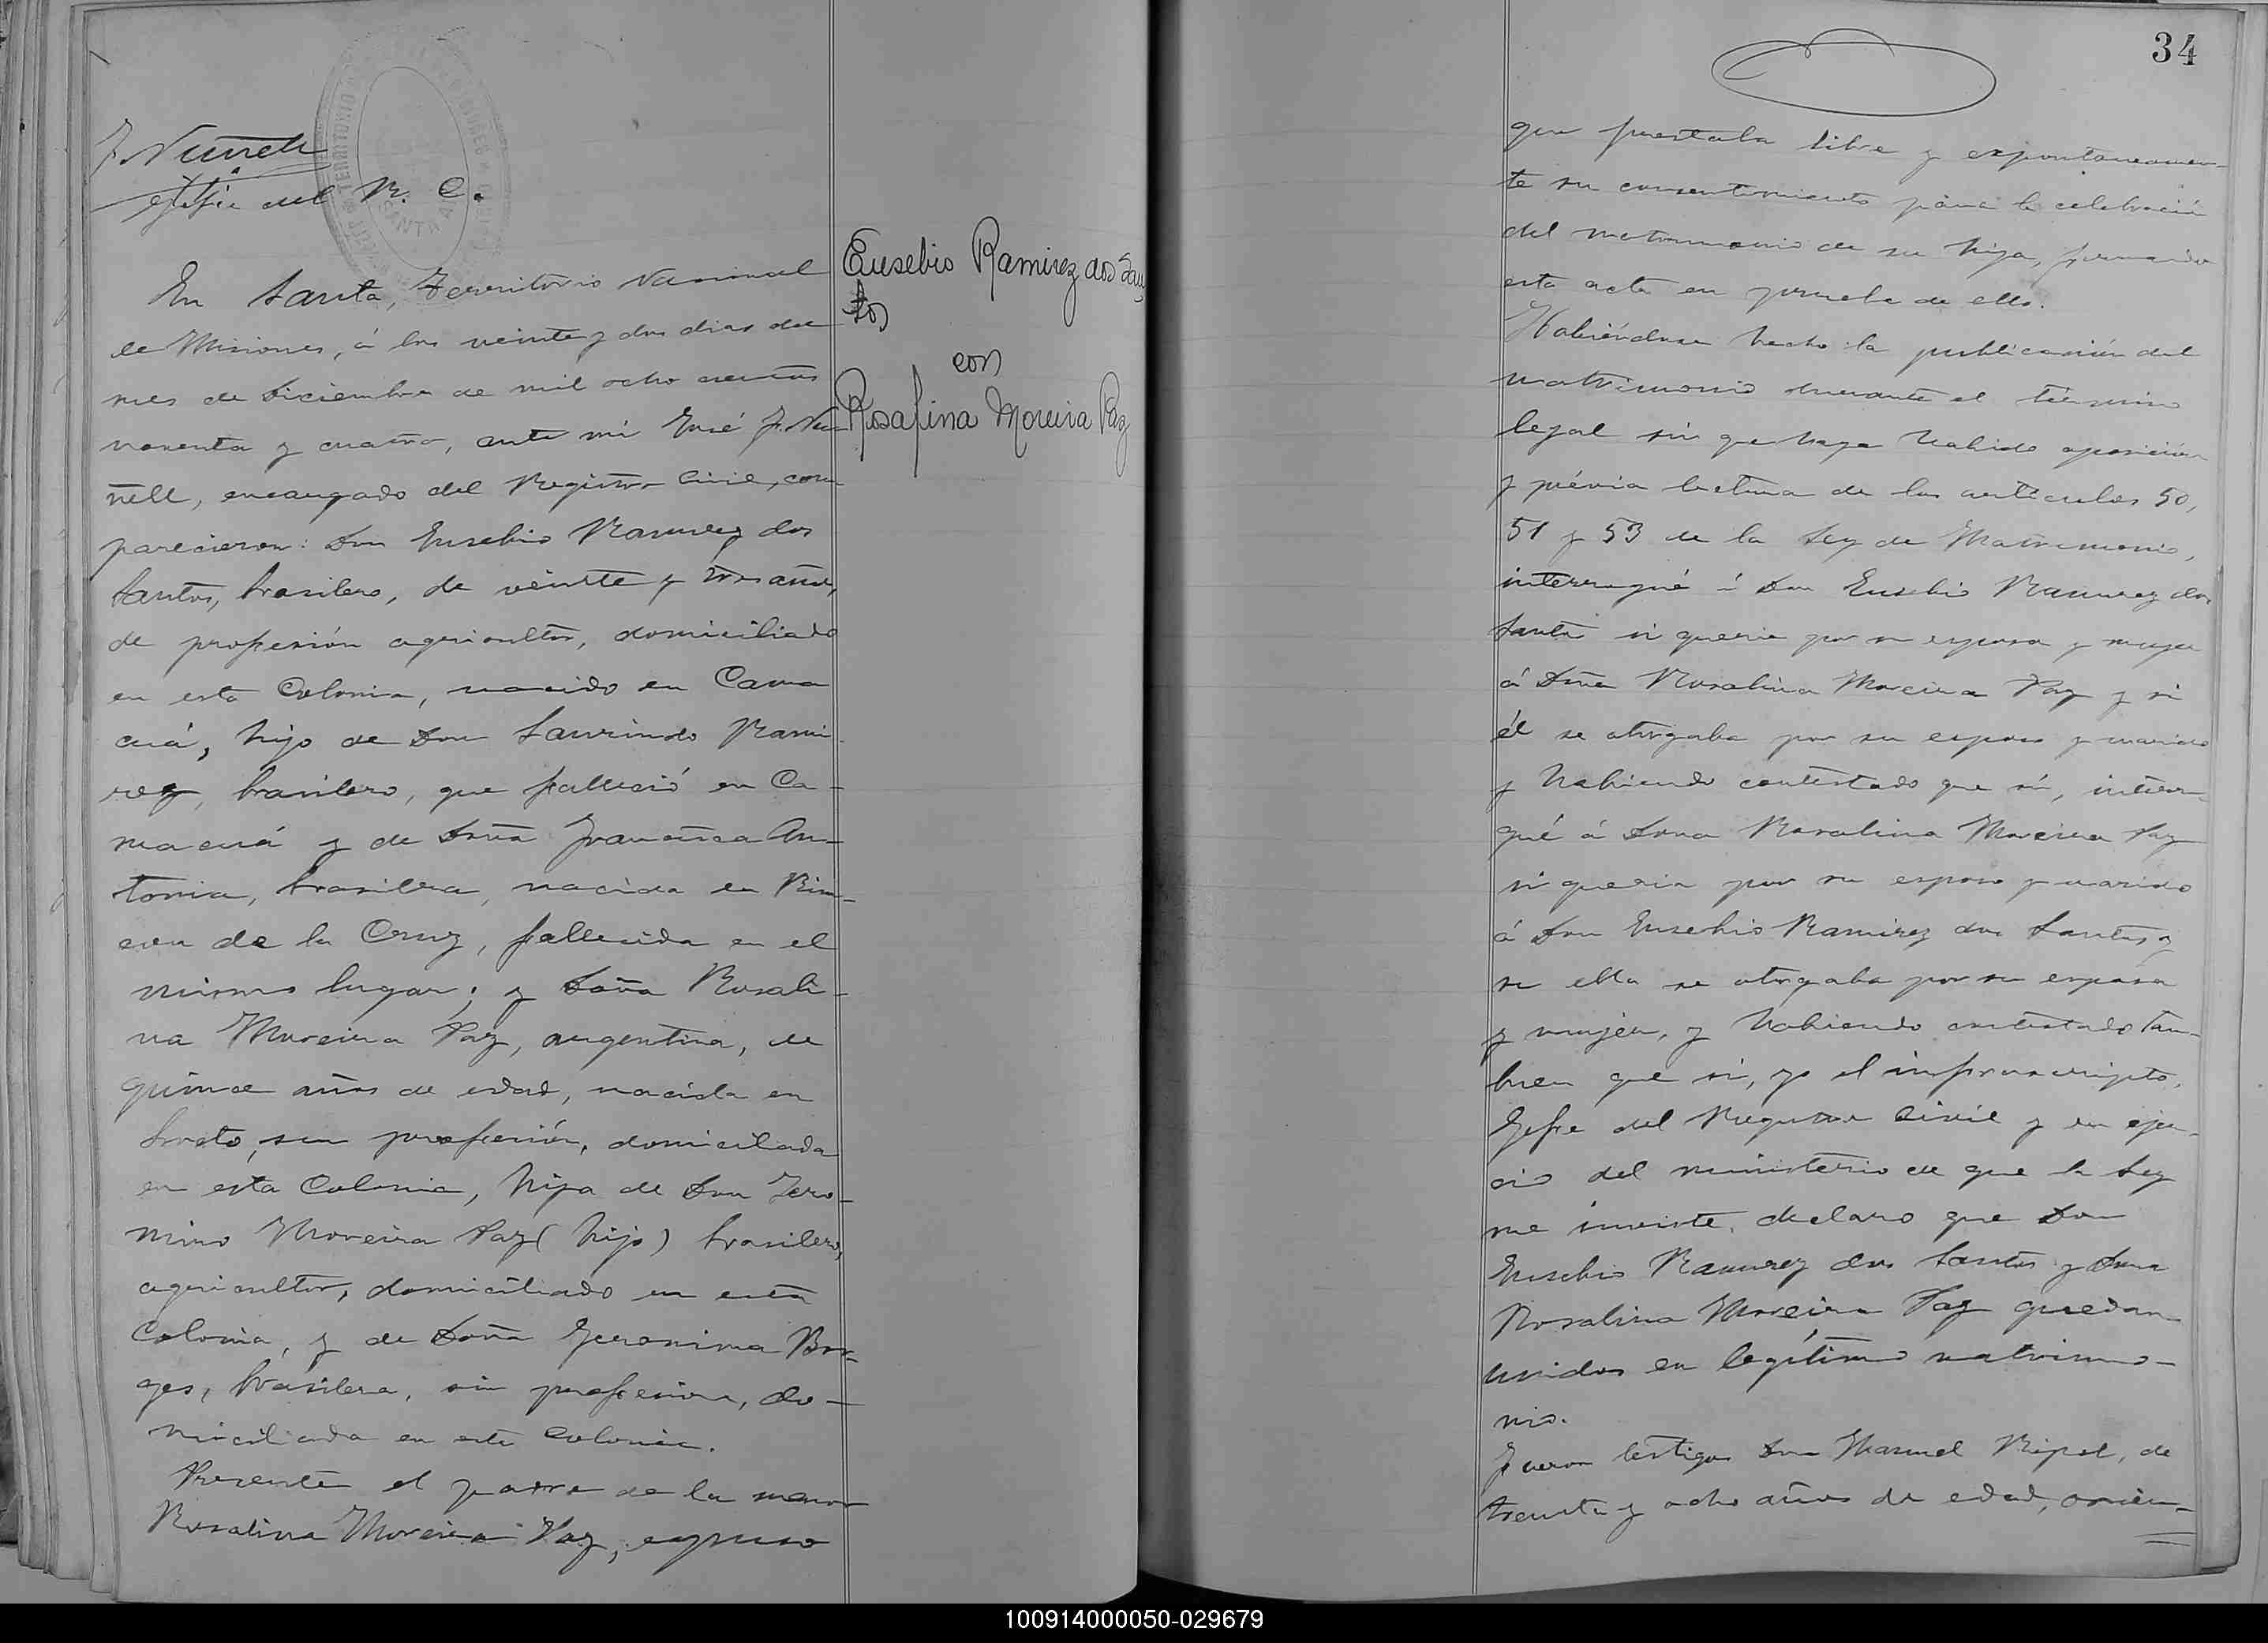 J. Nuñell
Gefe del R. C.
En Santa, Territorio Nacional
de Misiones, á los veinte y dos dias del
mes de Diciembre de mil ocho cientos
noventa y cuatro, ante mi José J. Nu-
ñell, encargado del Registro Civil, com-
parecieron: Don Eusebio Ramirez dos
Santos, brasilero, de veinte y tres años,
de profesión agricultor, domiciliado
en esta Colonia, nacido en Cama
cuá, hijo de Don Laurindo Rami
rez, brasilero, que falleció en Ca-
macuá y de Doña Francisca An-
tonia, brasilera, nacida en Rin-
con de la Cruz, fallecida en el
mismo lugar; y Doña Rosali-
na Moreira Paz, argentina, de
quince años de edad, nacida en
Loreto, sin profesión, domiciliada
en esta Colonia, hija de Don Jero-
nimo Moreira Paz (hijo) brasilero,
agricultor, domiciliado en esta
Colonia, y de Doña Geronima Bor-
ges, brasilera, sin profesion, do-
miciliada en esta Colonia.
Presente el padre de la menor
Rosalina Moreira Paz, expuso
Eusebio Ramirez dos San
tos
con
Rosafina Moreira Paz
34
que prestaba libre y expontaneamen-
te su consentimiento para la celebración
del matrimonio de su hija, firmando
esta acta en prueba de ello.
Habiéndose hecho la publicación del
matrimonio durante el término
legal sin que haya habido oposición
y prévia lectura de los artículos 50,
51 y 53 de la Ley de Matrimonio,
interrogué á Don Eusebio Ramirez dos
Santos si queria por su esposa y mujer
á Doña Rosalina Moreira Paz y si
él se otorgaba por su esposo y marido
y habiendo contestado que sí, interro-
gué á Doña Rosalina Moreira Paz
si queria por su esposo y marido
á Don Eusebio Ramirez dos Santos y
si ella se otorgaba por su esposa
y mujer, y habiendo contestado tam-
bien que si, yo el infrascripto,
Gefe del Registro Civil y en ejer-
cio del ministerio de que la Ley
me inviste, declaro que Don
Eusebio Ramirez dos Santos y Doña
Rosalina Moreira Paz quedan
unidos en legítimo matrimo-
nio.
Fueron testigos Don Manuel Ripol, de
treinta y ocho años de edad, orien-
100914000050-029679